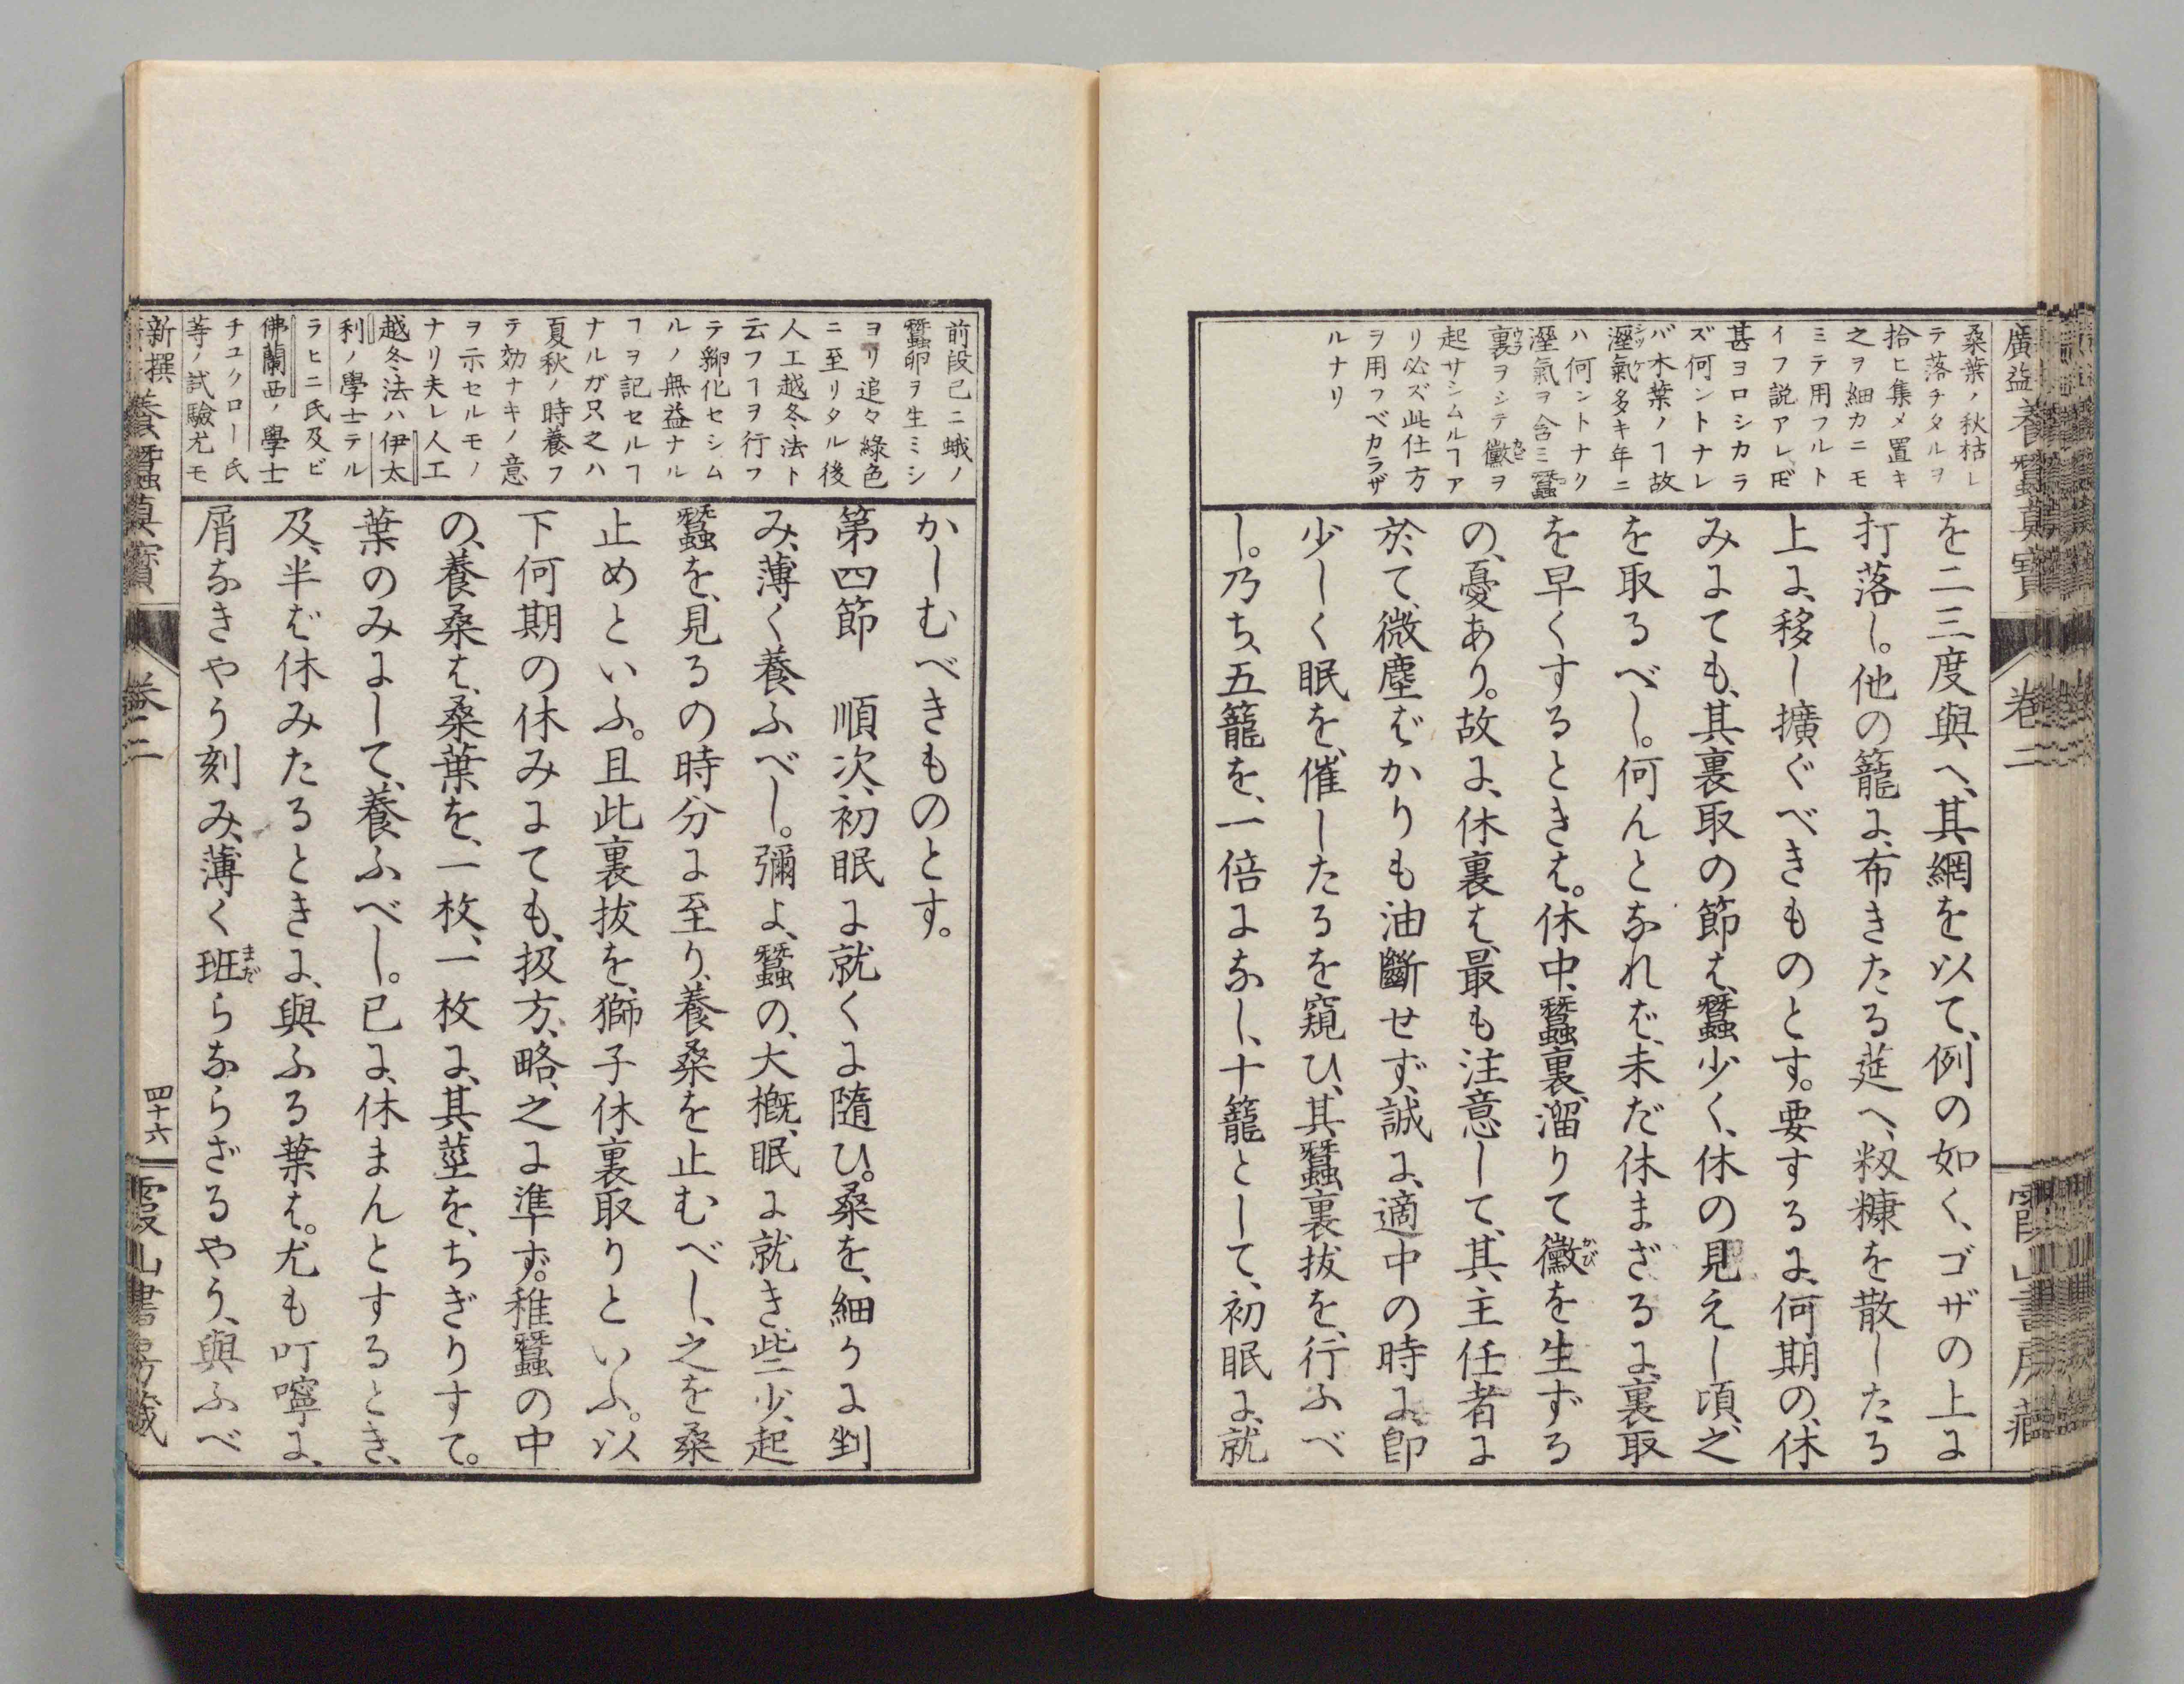 廣益養蠶真寶 卷二 霞山書房藏
桑葉ノ秋枯レ
テ落チタルヲ
拾ヒ集メ置キ
之ヲ細カニモ
ミテ用フルト
イフ説アレ𪜈
甚ヨロシカラ
ズ何ントナレ
バ木葉ノヿ故
溼氣多キ年ニ
ハ何ントナク
溼氣ヲ含ミ蠶
裏ヲシテ黴ヲ
起サシムルヿア
リ必ズ此仕方
ヲ用フベカラザ
ルナリ
を二三度與へ、其網を以て、例の如く、ゴザの上に
打落し。他の籠に、布きたる莚へ、籾糠を散したる
上に、移し擴ぐべきものとす。要するに、何期の、休
みにても、其裏取の節は、蠶少く、休の見えし頃、之
を取るべし。何んとなれば、未だ休まざるに、裏取
を早くするときは。休中、蠶裏、溜りて黴を生ずる
の、憂あり。故に、休裏は、最も注意して、其、主任者に
於て、微塵ばかりも油斷せず、誠に、適中の時に、卽
少しく眠を、催したるを窺ひ、其、蠶裏拔を、行ふべ
し。乃ち、五籠を、一倍になし、十籠として、初眠に、就
前段已ニ蛾ノ
蠶卵ヲ生ミシ
ヨリ追々綠色
ニ至リタル後
人工越冬法ト
云フヿヲ行フ
テ孵化セシム
ルノ無益ナル
ヿヲ記セルヿ
ナルガ只之ハ
夏秋ノ時養フ
テ効ナキノ意
ヲ示セルモノ
ナリ夫レ人工
越冬法ハ伊太
利ノ學士テル
ラヒニ氏及ビ
佛蘭西ノ學士
チユクロー氏
等ノ試驗尤モ
かしむべきものとす。
第四節　順次、初眠に就くに隨ひ。桑を、細りに剉
み、薄く養ふべし。彌よ、蠶の、大概、眠に就き、些少、起
蠶を、見るの時分に至り、養桑を止むべし、之を桑
止めといふ。且此裏拔を、獅子休裏取りといふ。以
下何期の休みにても、扱方、略、之に準ず。稚蠶の中
の、養桑は、桑葉を、一枚、一枚に、其、莖を、ちぎりすて。
葉のみにして、養ふべし。已に、休まんとするとき、
及、半ば休みたるときに、與ふる葉は。尤も叮嚀に、
屑なきやう刻み、薄く班らならざるやう、與ふべ
新撰養蠶真寶 卷二 四十六 霞山書房藏